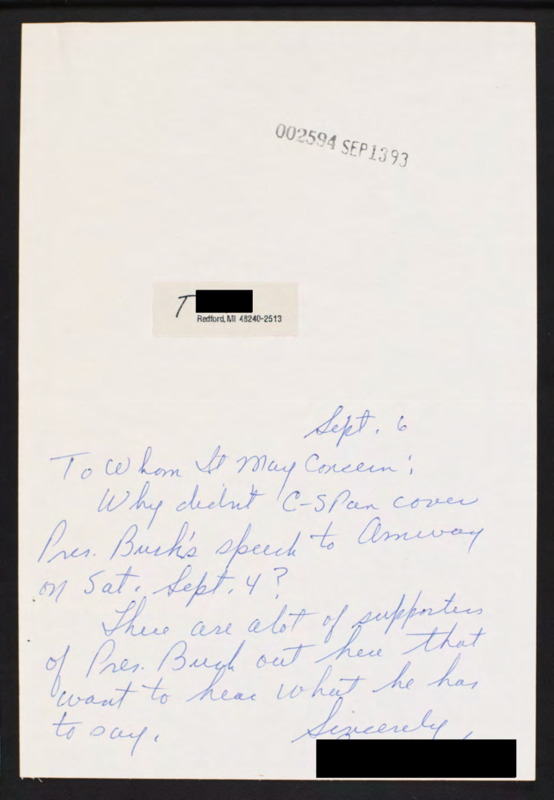 002594 SEP 13 93
T
Redford, MI 48240-2513
Sept. 6
To Whom It May Concern:
Why didn't C-SPan cover
Pres. Bush's speech to Amway
on Sat. Sept. 4?
There are alot of supporters
of Pres. Bush out here that
want to hear what he has
to say.
Sincerely,